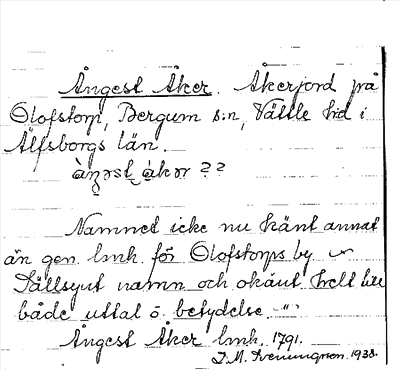 Ångest Åker. Åkerjord på
Olofstorp, Bergum s:n, Vättle hd i
Älfsborgs län.
àŋəst àkər ??
Namnet icke nu känt annat
än gen. lmh. för Olofstorps by
Sällsynt namn och okänt helt till
både uttal o. betydelse.
Ångest Åker lmh. 1791.
1938.